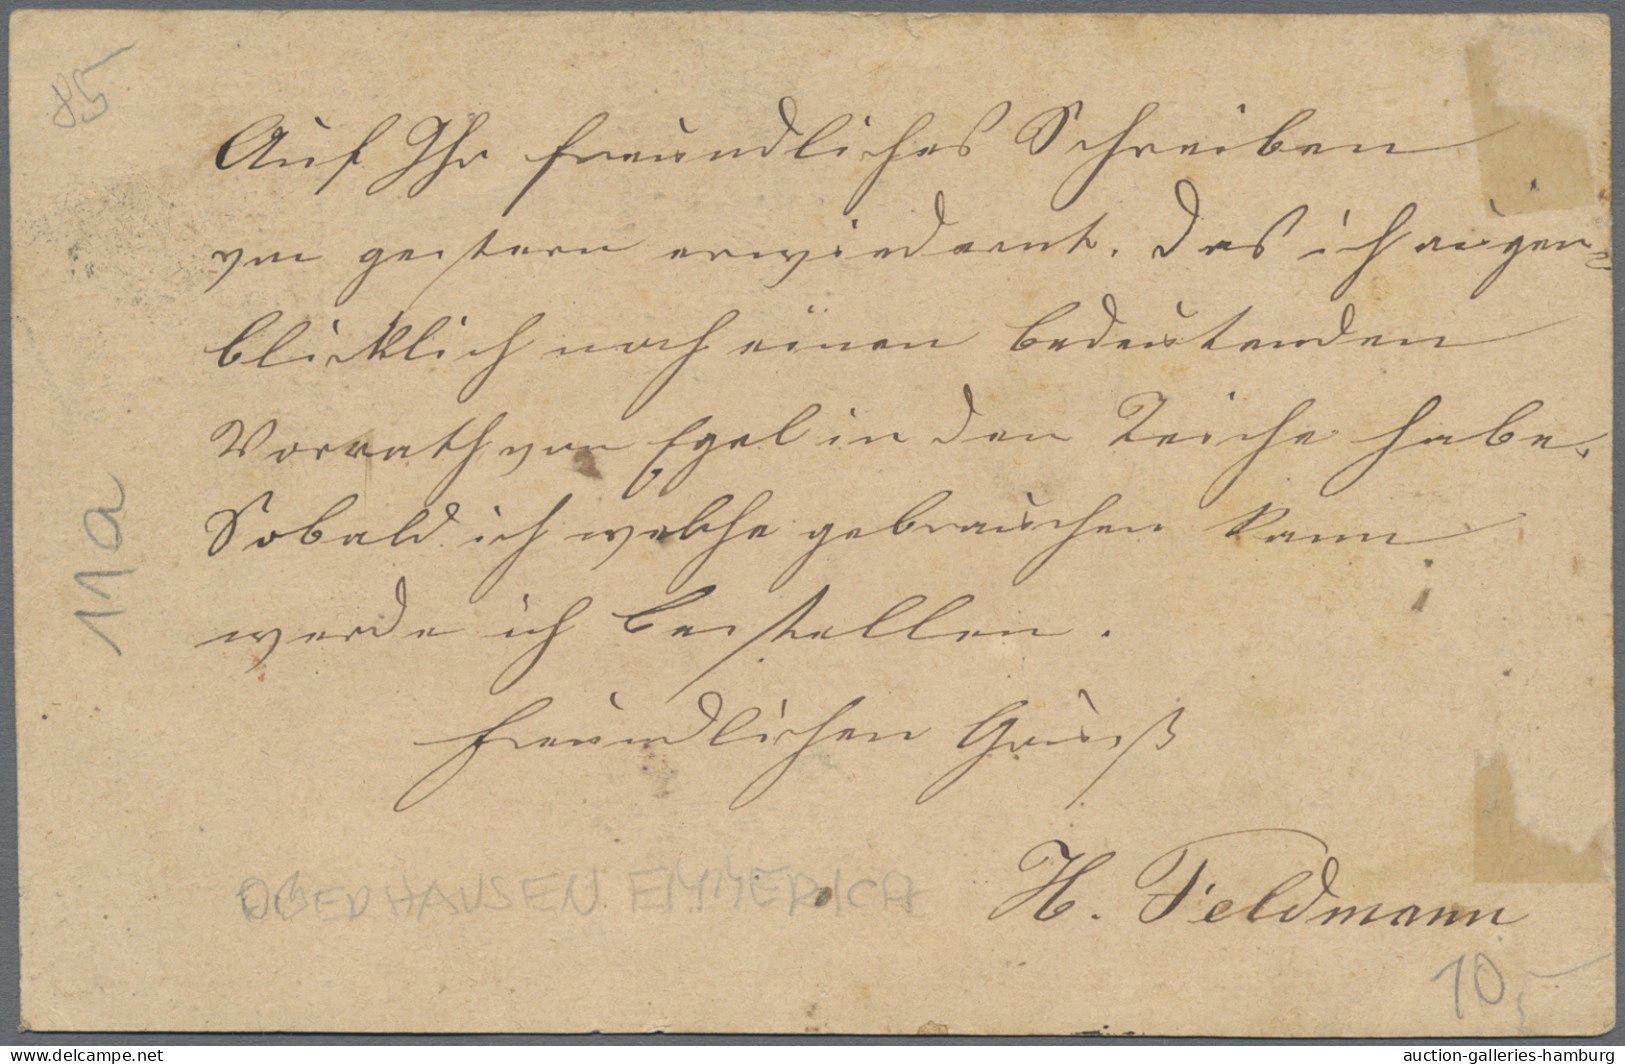 85
Auf Ihr freundliches Schreiben
von gestern erwiedernt, das ich augen-
blicklich noch einen bedeutenden
Vorrath von Egel in den Teiche habe.
Sobald ich welche gebrauchen kann
werde ich bestellen.
freundlichen Gruß
H. Feldmann
11a
OBERHAUSEN EMMERICH
10,-
auction-galleries-hamburg
See delcampe.net